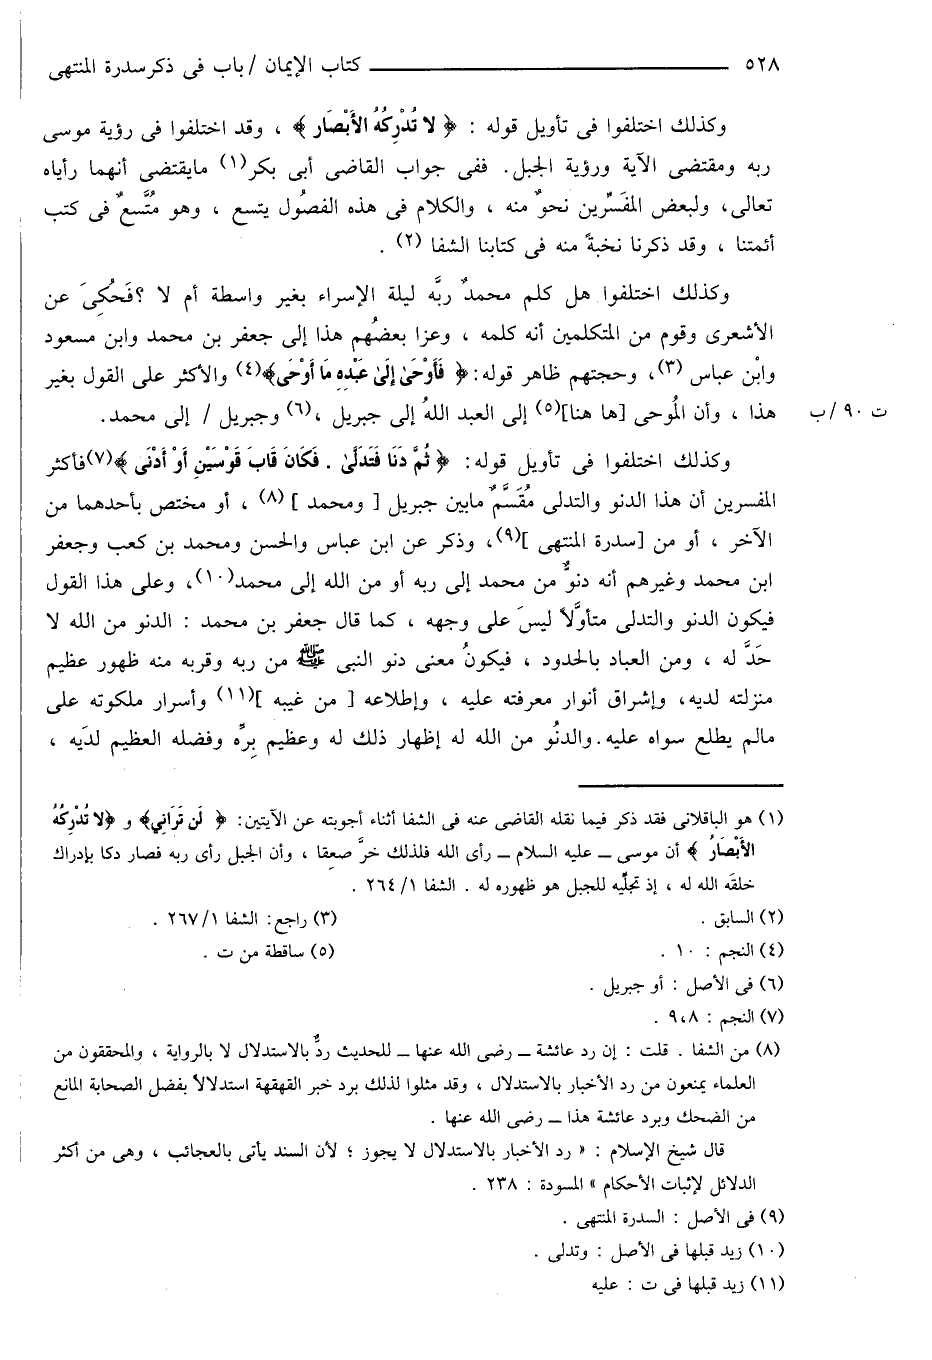 ٥٢٨ ــــــــــــــــــــ كتاب الإيمان / باب فى ذكر سدرة المنتهى
وكذلك اختلفوا فى تأويل قوله : ﴿ لا تُدْرِكُهُ الأَبْصَار ﴾ ، وقد اختلفوا فى رؤية موسى
ربه ومقتضى الآية ورؤية الجبل. ففى جواب القاضى أبى بكر(١) مايقتضى أنهما رأياه
تعالى، ولبعض المفَسِّرين نحوٌ منه ، والكلام فى هذه الفصُول يتسع ، وهو مُتَّسعٌ فى كتب
أئمتنا ، وقد ذكرنا نخبةً منه فى كتابنا الشفا (٢) .
وكذلك اختلفوا هل كلم محمدٌ ربَّه ليلة الإسراء بغير واسطة أم لا ؟فَحُكِىَ عن
الأشعرى وقوم من المتكلمين أنه كلمه ، وعزا بعضُهم هذا إلى جعفر بن محمد وابن مسعود
وابْن عباس (٣)، وحجتهم ظاهر قوله:﴿ فَأَوْحَىٰ إِلَىٰ عَبْدِهِ مَا أَوْحَى﴾(٤) والأكثر على القول بغير
هذا ، وأن المُوحى [ها هنا](٥) إلى العبد اللهُ إلى جبريل ،(٦) وجبريل / إلى محمد. ت ٩٠ /ب
وكذلك اختلفوا فى تأويل قوله: ﴿ ثُمَّ دَنَا فَتَدَلَّىٰ . فَكَانَ قَابَ قَوْسَيْنِ أَوْ أَدْنَى ﴾(٧)فأكثر
المفسرين أن هذا الدنو والتدلى مُقَسَّمٌ مابين جبريل [ ومحمد ] (٨) ، أو مختص بأحدهما من
الآخر ، أو من [سدرة المنتهى ](٩)، وذكر عن ابن عباس والحسن ومحمد بن كعب وجعفر
ابن محمد وغيرهم أنه دنوٌّ من محمد إلى ربه أو من الله إلى محمد(١٠)، وعلى هذا القول
فيكون الدنو والتدلى متأوَّلاً ليسَ على وجهه ، كما قال جعفر بن محمد : الدنو من الله لا
حَدَّ له ، ومن العباد بالحدود ، فيكونُ معنى دنو النبى ﷺ من ربه وقربه منه ظهور عظيم
منزلته لديه، وإشراق أنوار معرفته عليه ، وإطلاعه [ من غيبه ](١١) وأسرار ملكوته على
مالم يطلع سواه عليه. والدنُو من الله له إظهار ذلك له وعظيم بِرِّه وفضله العظيم لدَيه ،
(١) هو الباقلانى فقد ذكر فيما نقله القاضى عنه فى الشفا أثناء أجوبته عن الآيتين: ﴿ لَن تَرَانِي﴾ و ﴿لا تُدْرِكُهُ
الأَبْصَارُ ﴾ أن موسى ــ عليه السلام ــ رأى الله فلذلك خرَّ صعِقا ، وأن الجبل رأى ربه فصار دكا بإدراك
خلقَه الله له ، إذ تجلِّيه للجبل هو ظهوره له . الشفا ١/ ٢٦٤ .
(٢) السابق . (٣) راجع: الشفا ١/ ٢٦٧ .
(٤) النجم : ١٠ . (٥) ساقطة من ت .
(٦) فى الأصل : أو جبريل .
(٧) النجم : ٩،٨ .
(٨) من الشفا . قلت : إن رد عائشة ــ رضى الله عنها ــ للحديث ردٌّ بالاستدلال لا بالرواية ، والمحققون من
العلماء يمنعون من رد الأخبار بالاستدلال ، وقد مثلوا لذلك برد خبر القهقهة استدلالاً بفضل الصحابة المانع
من الضحك وبرد عائشة هذا ــ رضى الله عنها .
قال شيخ الإسلام : « رد الأخبار بالاستدلال لا يجوز ؛ لأن السند يأتى بالعجائب ، وهى من أكثر
الدلائل لإثبات الأحكام » المسودة : ٢٣٨ .
(٩) فى الأصل : السدرة المنتهى .
(١٠) زيد قبلها فى الأصل : وتدلى .
(١١) زيد قبلها فى ت : عليه